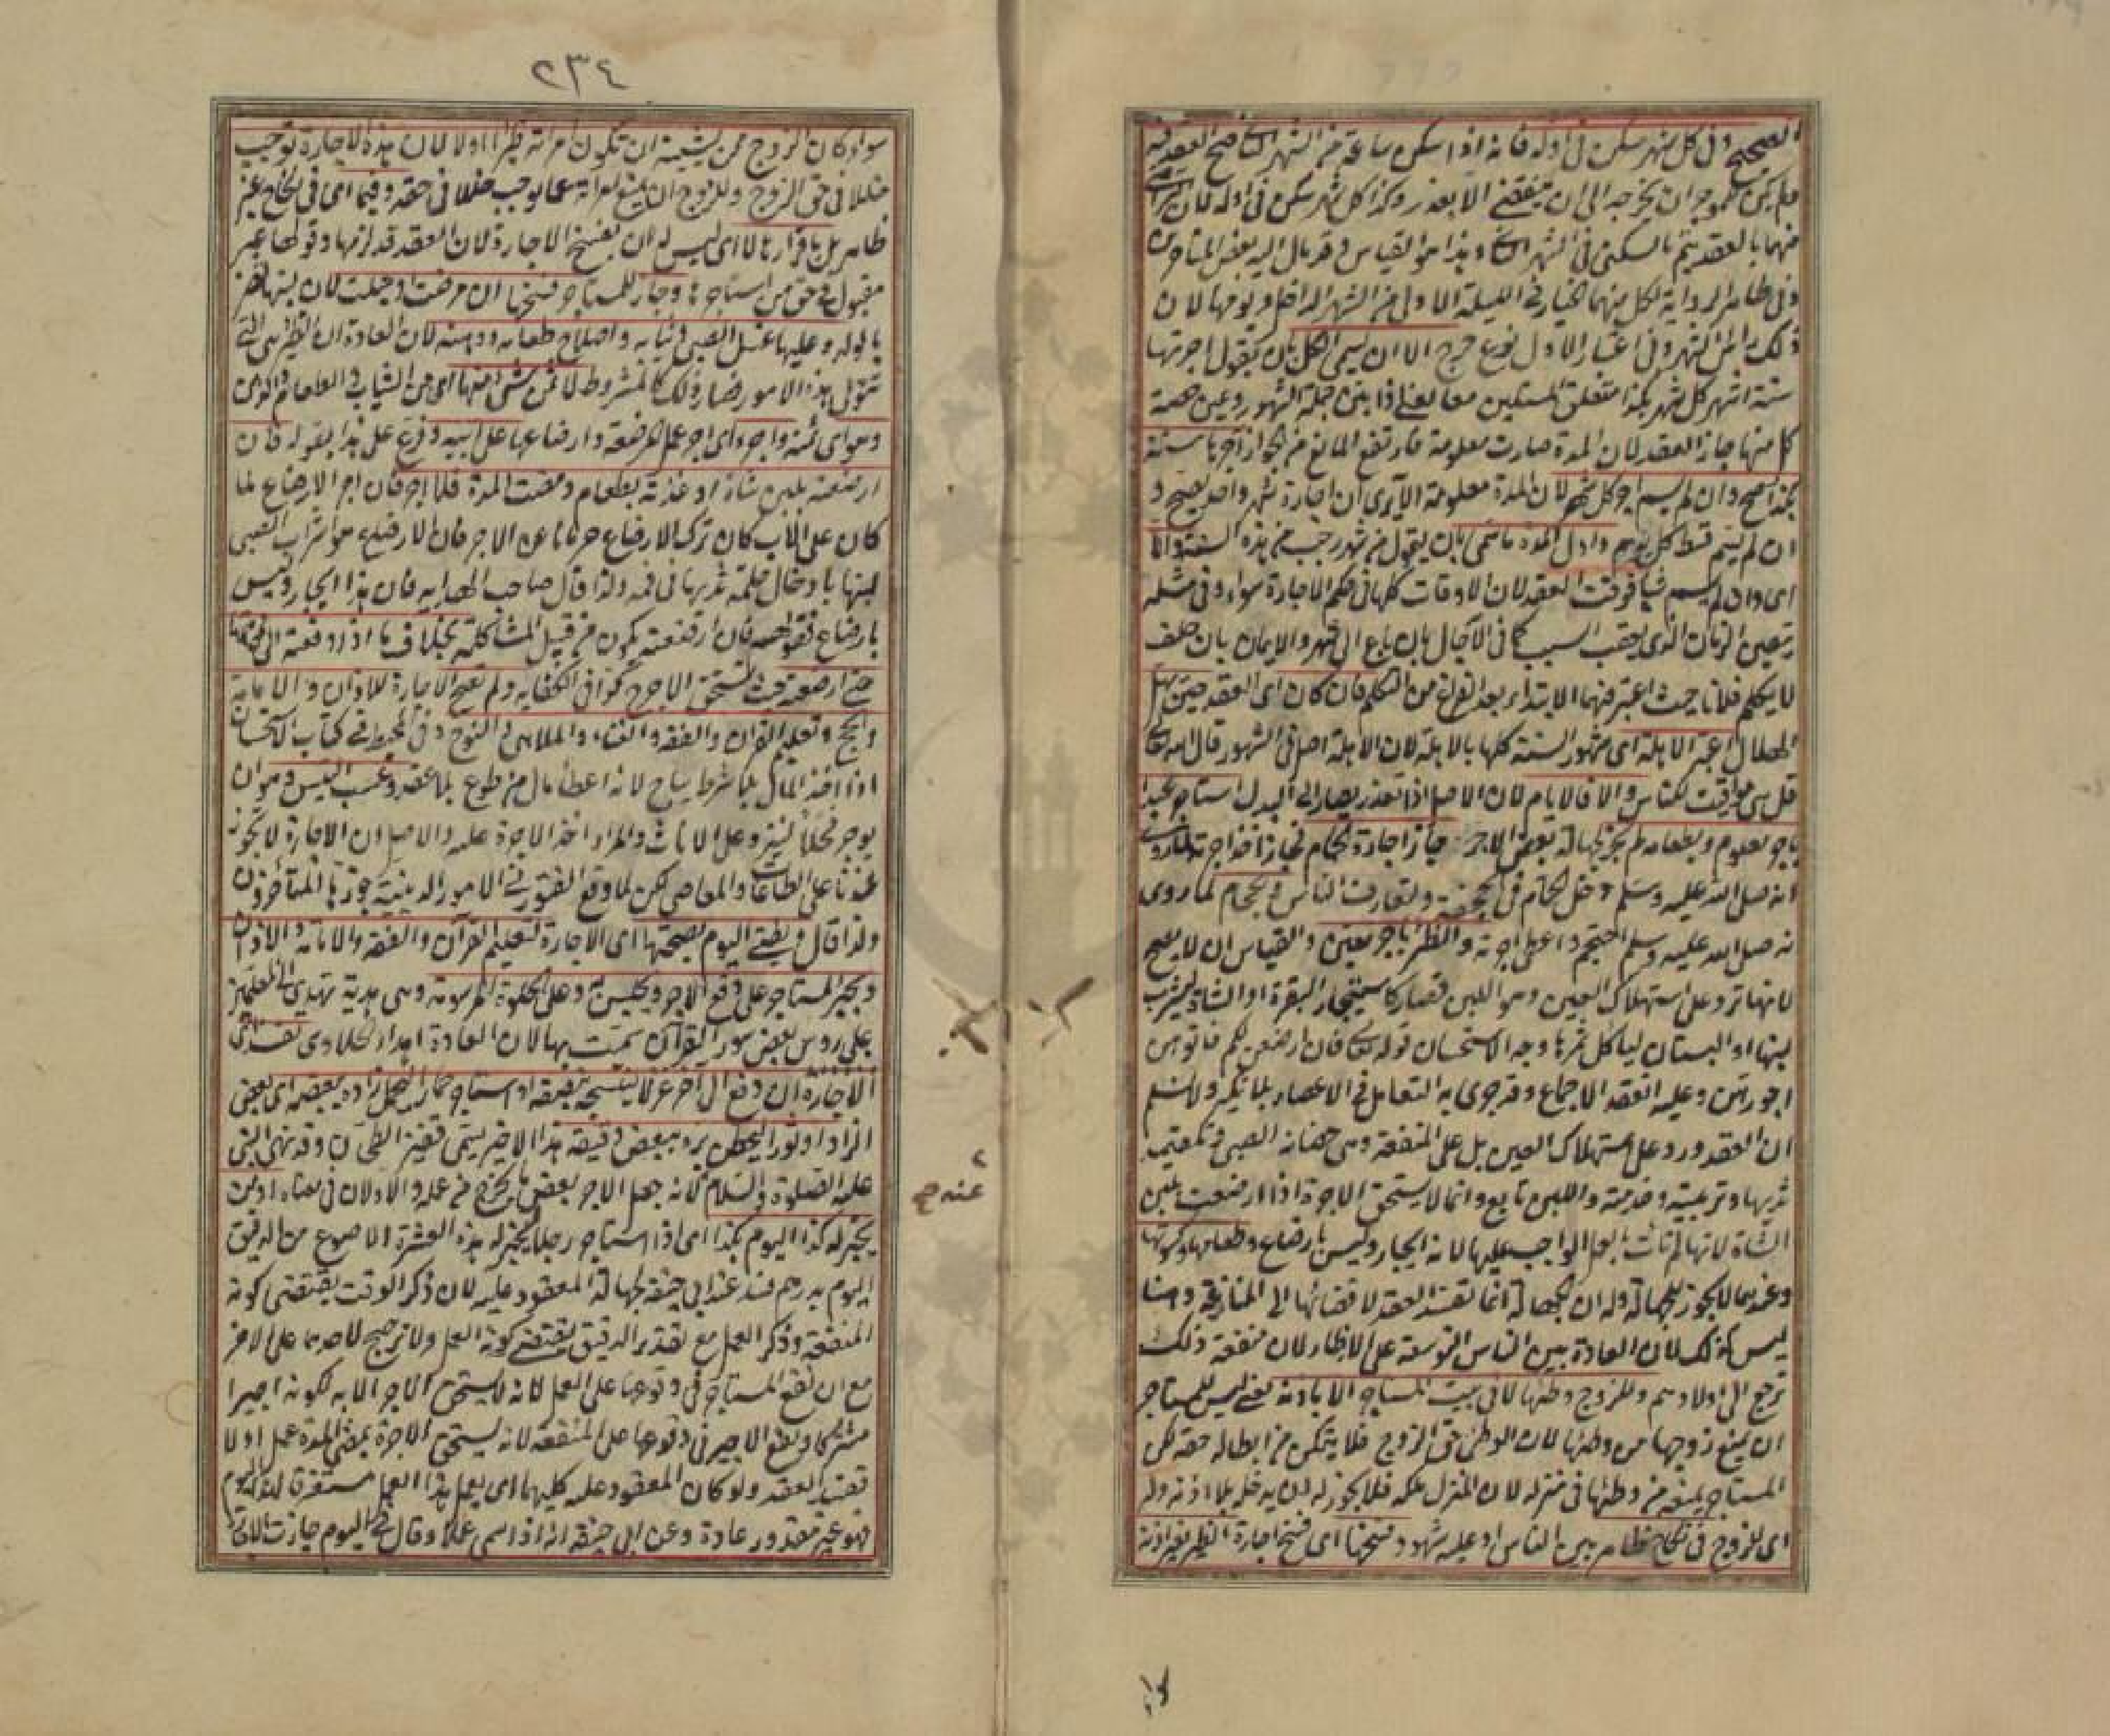 الصحيح وفى كل شهر سكن فى اوله فانه اذا سكن ساعة من الشهر الثانى صح العقد فيه
فلم يكن للموجر ان يخرجه الى ان ينقضى الا بعذر وكذا كل شهر سكن فى اوله لان
منهما بالعقد يتم بالسكنى فى الشهر الثانى وهذا هو القياس وقد مال اليه بعض المتاخرين
وفى ظاهر الرواية لكل منهما الخيار فى الليلة الاولى من الشهر الداخل ويومها لان
ذلك راس الشهر وفى اعتبار الاول نوع حرج الا ان يسمى الكل بان يقول اجرتها
ستة اشهر كل شهر بكذا يعنى اذا بين جملة الشهور وعين حصة
كل منها جاز العقد لان المدة صارت معلومة فارتفع المانع من الجواز اجرها سنة
بكذا صح وان لم يسم اجر كل شهر لان المدة معلومة الا يرى ان اجارة شهر واحد يصح و
ان لم يبين قسط كل يوم واول المدة ما سمى بان يقول من شهر رجب من هذه السنة والا
اى وان لم يسم شيا فوقت العقد لان الاوقات كلها فى حكم الاجارة سواء وفى مثله
يتعين الزمان الذى يعقب السبب كما فى الآجال بان باع الى شهر والايمان بان حلف
لا يكلم فلانا حيث اعتبر فيهما الابتداء بعد الفراغ من التكلم فان كان اى العقد حين يهل
الهلال اعتبر الاهلة اى شهور السنة كلها بالاهلة لان الاهلة اصل فى الشهور قال الله تعالى
قل هى مواقيت للناس والا فالايام لان الاصل اذا تعذر يصار الى البدل استاجر عبدا
باجر معلوم وبطعامه لم يجز لجهالة بعض الاجر جاز اجارة الحمام فجاز اخذ اجرته لما روى
انه صلى الله عليه وسلم دخل الحمام فى الجحفة ولتعارف الناس والحجام لما روى
انه صلى الله عليه وسلم احتجم واعطى اجرته والظئر باجر معين والقياس ان لا يصح
لانها ترد على استهلاك العين وهو اللبن فصار كاستيجار البقرة او الشاة ليشرب
لبنها او البستان لياكل ثمرها وجه الاستحسان قوله تعالى فان ارضعن لكم فاتوهن
اجورهن وعليه انعقد الاجماع وقد جرى به التعامل فى الاعصار بلا نكير ولا نسلم
ان العقد ورد على استهلاك العين بل على المنفعة وهى حضانة الصبى وتلقيمه
ثديها وتربيته وخدمته واللبن تابع وانما لا يستحق الاجرة اذا ارضعت بلبن
الشاة لانها لم تات بالعمل الواجب عليها لانه ايجار وليس بارضاع وطعامها وكسوتها
وعندهما لا يجوز للجهالة وله ان الجهالة انما تفسد العقد لافضائها الى المنازعة وهنا
ليس كذلك لان العادة بين الناس التوسعة على الاظآر لان منفعة ذلك
ترجع الى اولادهم وللزوج وطئها لا فى بيت المستاجر الا باذنه يعنى ليس للمستاجر
ان يمنع زوجها من وطئها لان الوطئ حق الزوج فلا يتمكن من ابطال حقه لكن
المستاجر يمنعه من وطئها فى منزله لان المنزل ملكه فلا يجوز له ان يدخله بلا اذنه وله
اى للزوج فى نكاح ظاهر بين الناس او عليه شهود فسخها اى فسخ اجارة الظئر بغير اذنه
٢٣٤
سواء كان الزوج ممن يشينه ان تكون امراته ظئرا او لا لان هذه الاجارة توجب
خللا فى حق الزوج وللزوج ان يمنع امراته عما يوجب خللا فى حقه وفيما اى فى نكاح غير
ظاهر بل باقرارها لا اى ليس له ان يفسخ الاجارة لان العقد قد لزمها وقولها غير
مقبول فى حق من استاجرها وجاز للمستاجر فسخها ان مرضت او حبلت لان لبنها يضر
بالولد وعليها غسل الصبى وثيابه واصلاح طعامه ودهنه لان العادة ان الظئر هى التى
تتولى هذه الامور فصار ذلك كالمشروط لا ثمن شئ منها اى من الثياب والطعام والدهن
وهو اى ثمنه واجره اى اجر عمل المرضعة وارضاعها على ابيه وفرع على هذا بقوله فان
ارضعته بلبن شاة او غذته بطعام ومضت المدة فلا اجر فان اجر الارضاع لما
كان على الاب كان ترك الارضاع حرمانا عن الاجر فان الارضاع هو اشراب الصبى
لبنها بادخال حلمة ثديها فى فمه ولذا قال صاحب الهداية فان هذا ايجار وليس
بارضاع فقولهم فان ارضعته يكون من قبيل المشاكلة بخلاف ما اذا دفعته الى خادمتها
حتى ارضعته حيث تستحق الاجرة كذا فى الكفاية ولم تصح الاجارة للاذان والامامة
والحج وتعليم القران والفقه والغناء والملاهى والنوح وفى المحيط فى كتاب الاستحسان
اذا اخذ المال بلا شرط يباح لانه اعطاء مال من طوع بلا عقد وعسب التيس وهو ان
يوجر فحلا لينزو على الاناث والمراد اخذ الاجرة عليه والاصل ان الاجارة لا تجوز
عندنا على الطاعات والمعاصى لكن لما وقع الفتور فى الامور الدينية جوزها المتأخرون
ولذا قال ويفتى اليوم بصحتها اى الاجارة لتعليم القرآن والفقه والامامة والاذان
ويجبر المستاجر على دفع الاجر ويحبس به وعلى الحلوة المرسومة وهى هدية تهدى الى المعلمين
على رؤس بعض سور القرآن سميت بها لان العادة اهداء الحلاوى تفسد
الاجارة ان دفع الى آخر غزلا لينسجه بنصفه او استاجر حمارا ليحمل زاده ببعضه اى بعض
الزاد او ثورا ليطحن بره ببعض دقيقه هذا الاخير يسمى قفيز الطحان وقد نهى النبى
عليه الصلوة والسلام لانه جعل الاجر بعض ما يخرج من عمله والاولان فى معناه او من
يخبز له كذا اليوم بكذا اى اذا استاجر رجلا ليخبز له هذه العشرة الاصوع من الدقيق
اليوم بدرهم فسد عند ابى حنيفة لجهالة المعقود عليه لان ذكر الوقت يقتضى كونه
المنفعة وذكر العمل مع تقدير الدقيق يقتضى كونه العمل ولا ترجيح لاحدهما على الاخر
مع ان نفع المستاجر فى وقوعها على العمل لانه لا يستحق الاجر الا به لكونه اجيرا
مشتركا ونفع الاجير فى وقوعها على المنفعة لانه يستحق الاجرة بمضى المدة عمل او لا
تفسد العقد ولو كان المعقود عليه كليهما اى يعمل هذا العمل مستغرقا لهذا اليوم
فهو غير مقدور عادة وعن ابى حنيفة انه اذا سمى عملا وقال فى اليوم جازت الاجارة
عنه صح